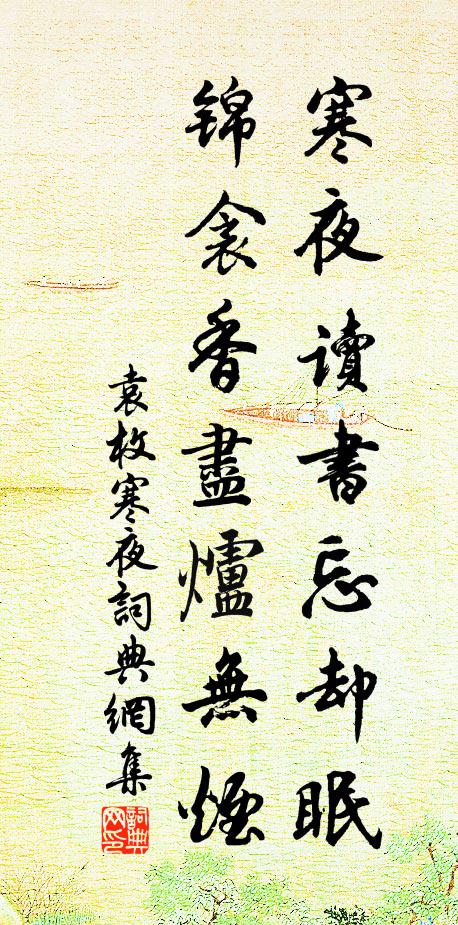 寒夜讀書忘却眠
錦衾香盡爐無煙
袁枚寒夜詞典網集
詞典网印